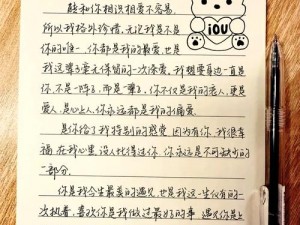 能和你相识相爱不容易.
IOU
所以我格外珍惜,无论我是不是
你的唯一,你都是我的最爱,也是
我这辈子毫无保留的一次深爱,我想身边一直是
你,不是一阵子,而是一辈子,你不仅是我的恋人,更是
爱人,是心上人,你永远都是我的偏爱
是你给了我特别的感觉,因为有你,我很幸
福,在我心里,没人比得过你,你永远是不可缺少的
一部分.
你是我今生最美的遇见,也是我这一生仅有的一
次执着,喜欢你是我做过最好的事,遇见你是上